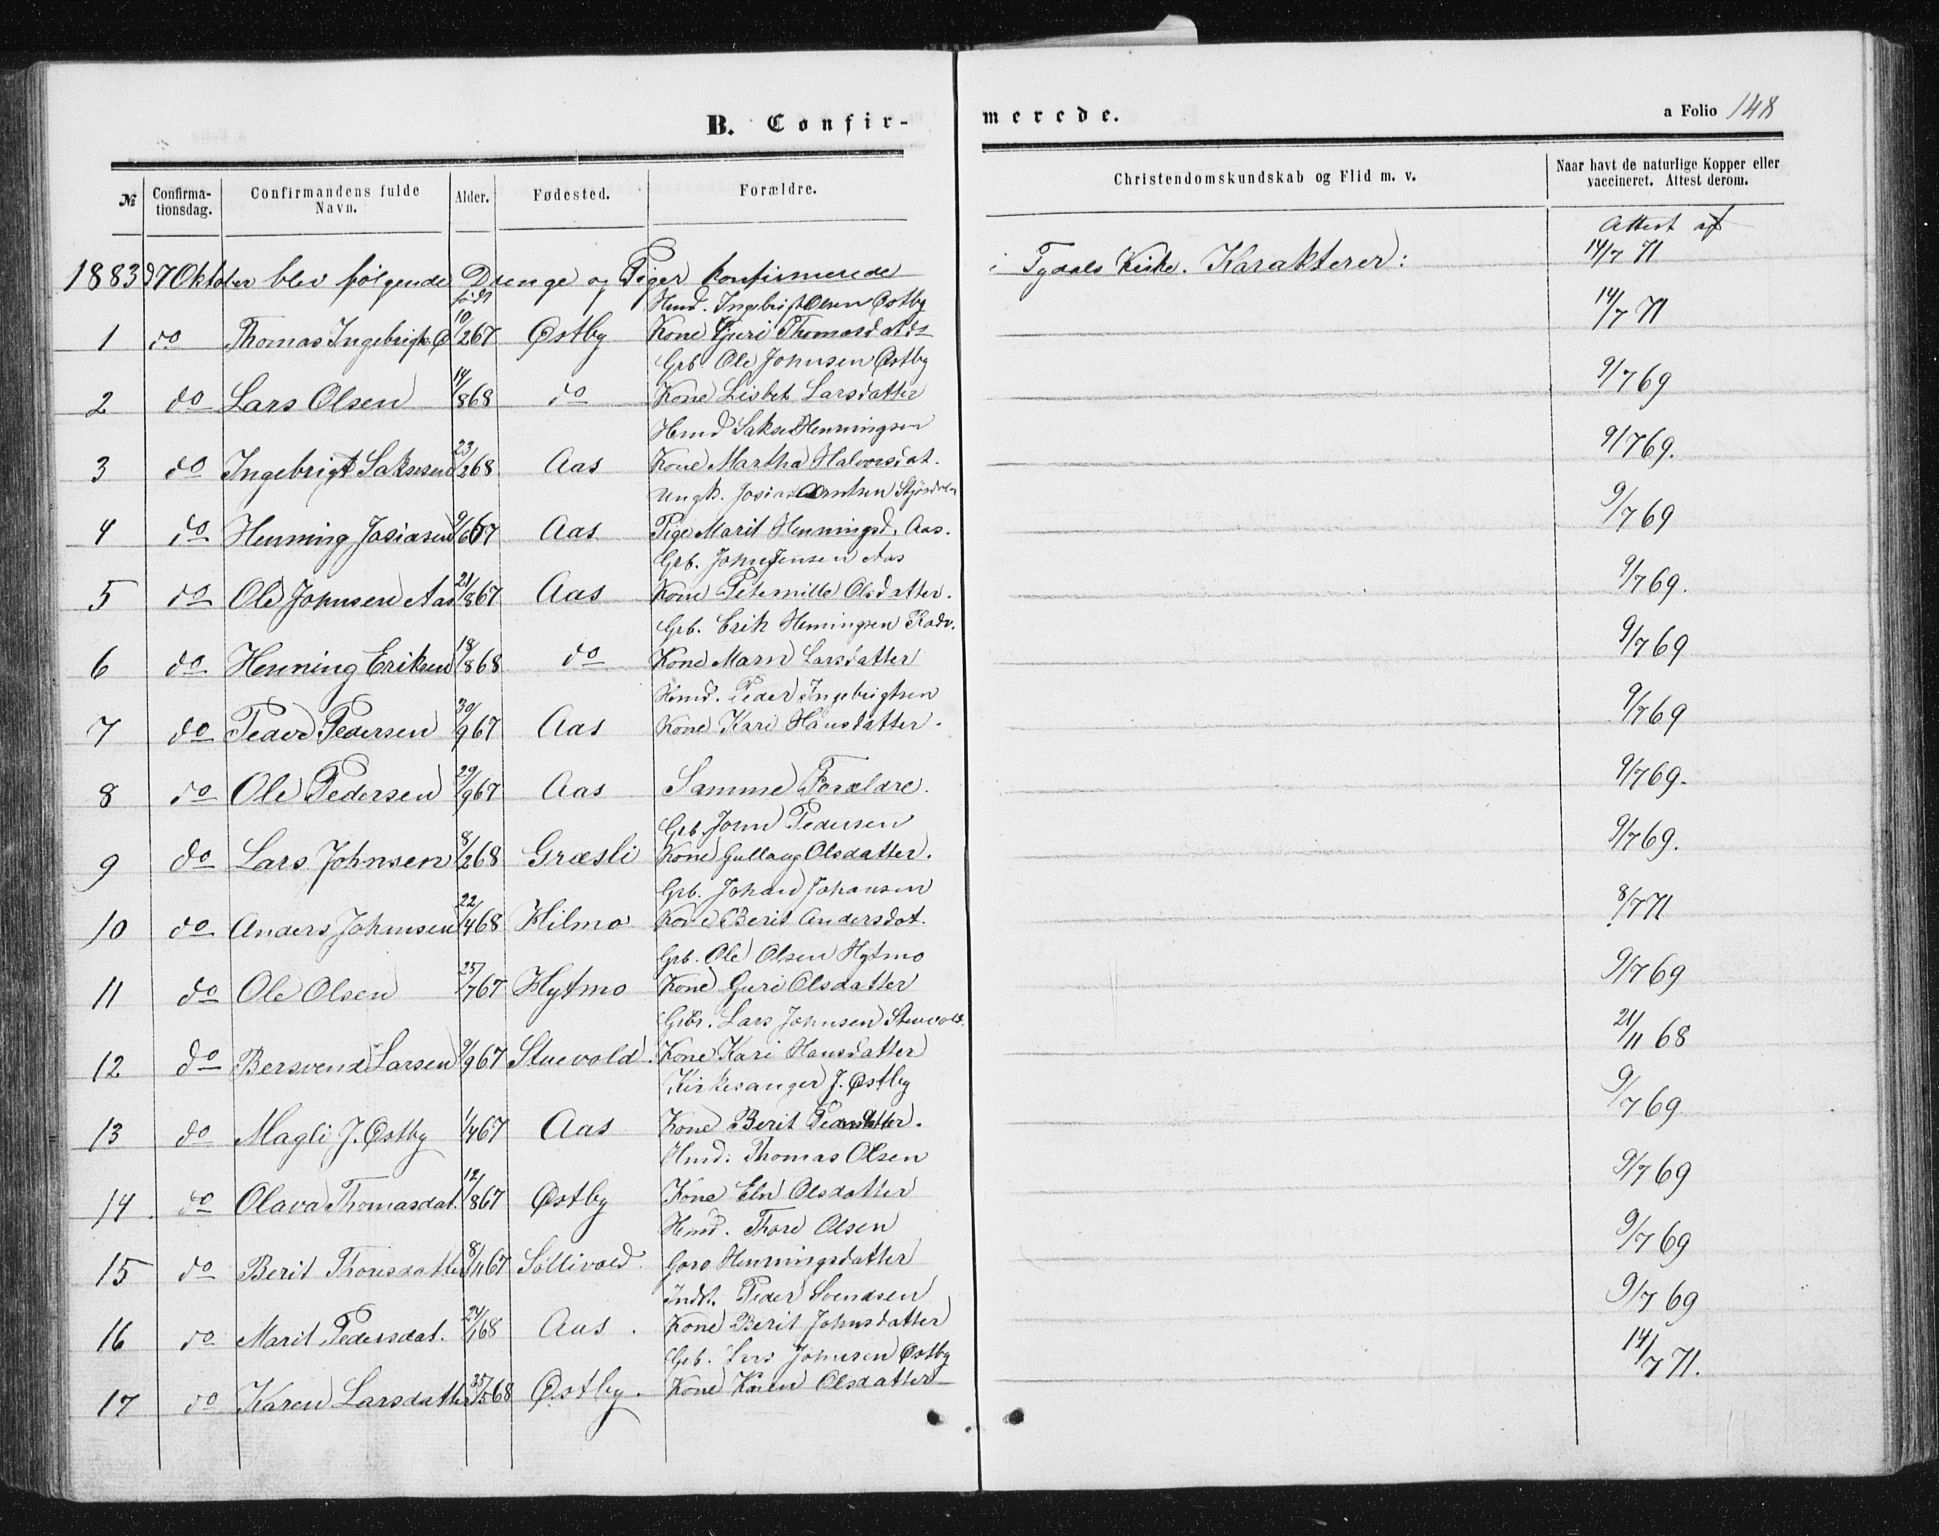 B. Confir-
merede.
a Folio 148
№
Confirma-
tionsdag.
Confirmandens fulde
Navn.
Alder.
Fødested.
Forældre.
Christendomskundskab og Flid m. v.
Naar havt de naturlige Kopper eller
vaccineret. Attest derom.
Attest af
1883 d 7 Oktober blev følgende Drenge og Piger konfirmerede i Tydals Kirke. Karakterer: 14/7 71
født Hmd. Ingebrigt Olsen Østby
1 do Thomas Ingebrigts. Ø 10/2 67 Østby Kone Guri Thomasdatds 14/7 71
Grb. Ole Johnsen Østby
2 do Lars Olsen 14/8 68 do Kone Lisbet Larsdatter 9/7 69
Hmd Sakse Henningsen
3 do Ingebrigt Saksesen 23/2 68 Aas Kone Martha Halvorsdat. 9/7 69.
Ungk. Josias Arntsen Stjørdalen
4 do Henning Josiasen 9/6 67 Aas Pige Marit Henningsd. Aas. 9/7 69
Grb. John Jensen Aas
5 do Ole Johnsen Aas 21/8 67 Aas Kone Peternille Olsdatter. 9/7 69.
Grb. Erik Henningsen
6 do Henning Eriksen 18/8 68 do Kone Marn Larsdatter 9/7 69
Hmd. Peder Ingebrigtsen
7 do Peder Pedersen 30/9 67 Aas Kone Kari Hansdatter. 9/7 69
8 do Ole Pedersen 29/9 67 Aas Samme Forældre. 9/7 69.
Grb. John Pedersen
9 do Lars Johnsen 8/2 68 Græsli Kone Gullaug Olsdatter. 9/7 69.
Grb. Johan Johansen
10 do Anders Johnsen 22/4 68 Hilmo Kone Berit Andersdat. 8/7 71
Grb. Ole Olsen Hytmo
11 do Ole Olsen 25/7 67 Hytmo Kone Guri Olsdatter 9/7 69
Grbr. Lars Johnsen Stuevold.
12 do Bersvend Larsen 9/9 67 Stuevold. Kone Kari Hansdatter 21/11 68
Kirkesanger J. Østby
13 do Magli J. Østby 1/4 67 Aas Kone Berit Pedersdatter. 9/7 69
Hmd. Thomas Olsen
14 do Olava Thomasdat. 12/8 67 Østby Kone Eln Olsdatter 9/7 69
Hmd. Thore Olsen
15 do Berit Thoresdatter 8/11 67 Søllivold. Goro Henningsdatter 9/7 69
Indt. Peder Svendsen
16 do Marit Pedersdat. 24/1 68 Aas. Kone Berit Johnsdatter 9/7 69
Grb. Lars Johnsen Østby
17 do Karen Larsdatter 25/5 68 Østby. Kone Karen Olsdatter 14/7 71.